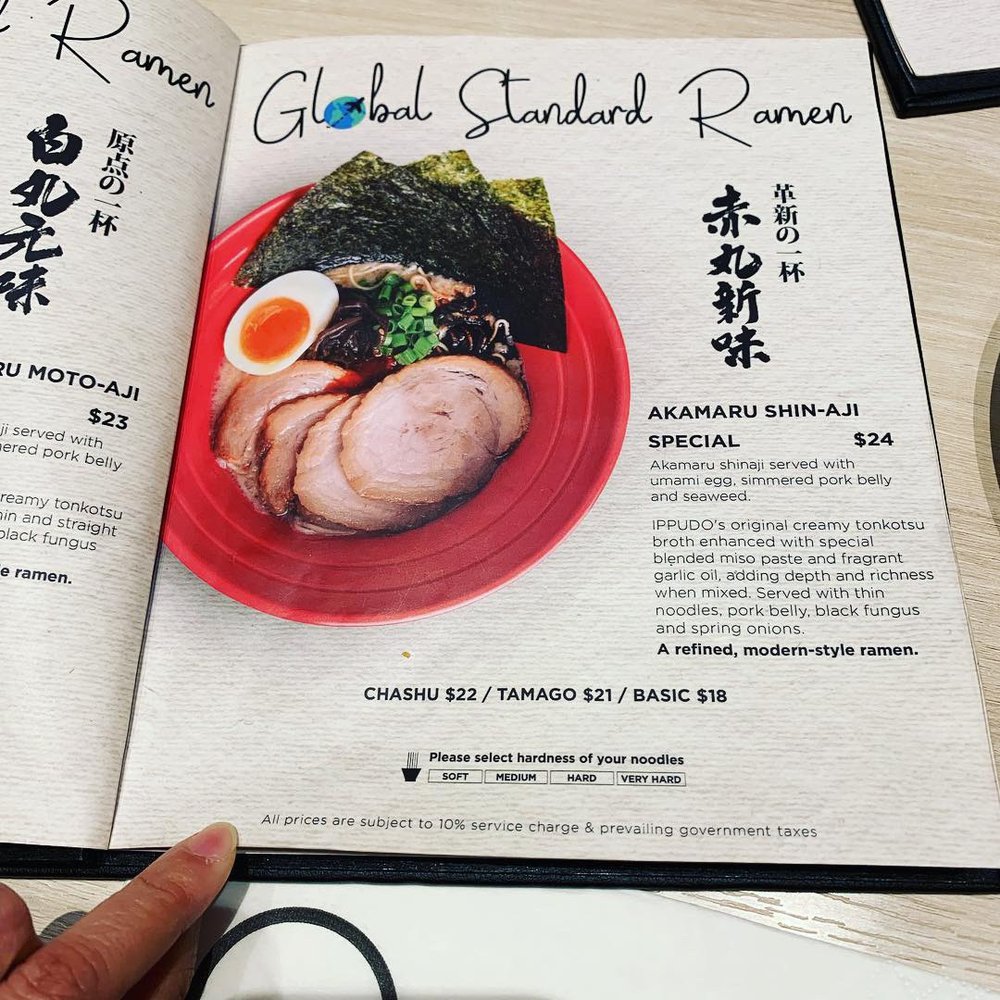 Ramen
原点の一杯
白丸元味
RU MOTO-AJI
$23
ji served with
mered pork belly
reamy tonkotsu
hin and straight
black fungus
le ramen.
Global Standard Ramen
革新の一杯
赤丸新味
AKAMARU SHIN-AJI
SPECIAL $24
Akamaru shinaji served with
umami egg, simmered pork belly
and seaweed.
IPPUDO's original creamy tonkotsu
broth enhanced with special
blended miso paste and fragrant
garlic oil, adding depth and richness
when mixed. Served with thin
noodles, pork belly, black fungus
and spring onions.
A refined, modern-style ramen.
CHASHU $22 / TAMAGO $21 / BASIC $18
Please select hardness of your noodles
SOFT MEDIUM HARD VERY HARD
All prices are subject to 10% service charge & prevailing government taxes